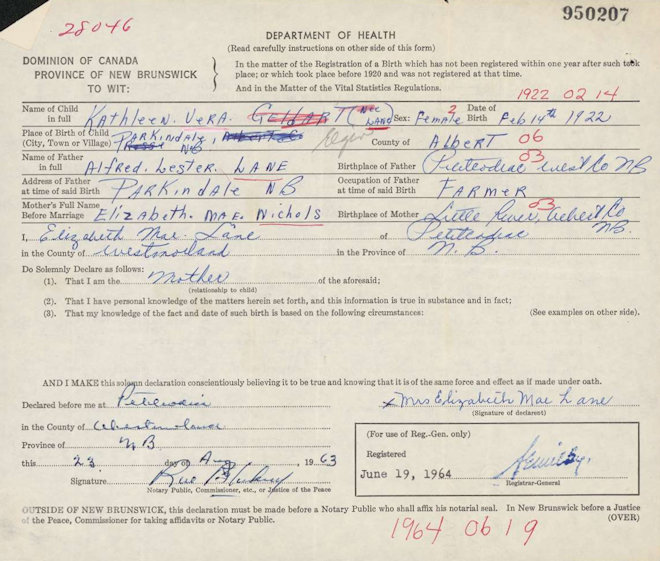 28046
950207
DEPARTMENT OF HEALTH
(Read carefully instructions on other side of this form)
DOMINION OF CANADA
PROVINCE OF NEW BRUNSWICK
TO WIT:
In the matter of the Registration of a Birth which has not been registered within one year after such took
place; or which took place before 1920 and was not registered at that time.
And in the Matter of the Vital Statistics Regulations.
1922 02 14
Name of Child in full Kathleen. Vera. Geldart (nee Lane) Sex: Female 2 Date of Birth Feb 14th 1922
Place of Birth of Child (City, Town or Village) Parkindale, NB Elgin County of Albert 06
Name of Father in full Alfred. Lester. Lane Birthplace of Father Petitcodiac West Co NB 03
Address of Father at time of said Birth Parkindale NB Occupation of Father at time of said Birth Farmer
Mother's Full Name Before Marriage Elizabeth. Mae. Nichols Birthplace of Mother Little River, Albert Co NB. 03
I, Elizabeth Mae. Lane of Petitcodiac
in the County of Westmorland in the Province of N. B.
Do Solemnly Declare as follows:
(1). That I am the Mother of the aforesaid;
(relationship to child)
(2). That I have personal knowledge of the matters herein set forth, and this information is true in substance and in fact;
(3). That my knowledge of the fact and date of such birth is based on the following circumstances: (See examples on other side).
AND I MAKE this solemn declaration conscientiously believing it to be true and knowing that it is of the same force and effect as if made under oath.
Declared before me at Petitcodiac
x Mrs Elizabeth Mae Lane
(Signature of declarent)
in the County of Westmorland
Province of N B
this 23 day of Aug 1963
Signature
Notary Public, Commissioner, etc., or Justice of the Peace
(For use of Reg.-Gen. only)
Registered
June 19, 1964
Registrar-General
OUTSIDE OF NEW BRUNSWICK, this declaration must be made before a Notary Public who shall affix his notarial seal. In New Brunswick before a Justice
of the Peace, Commissioner for taking affidavits or Notary Public. (OVER)
1964 06 19